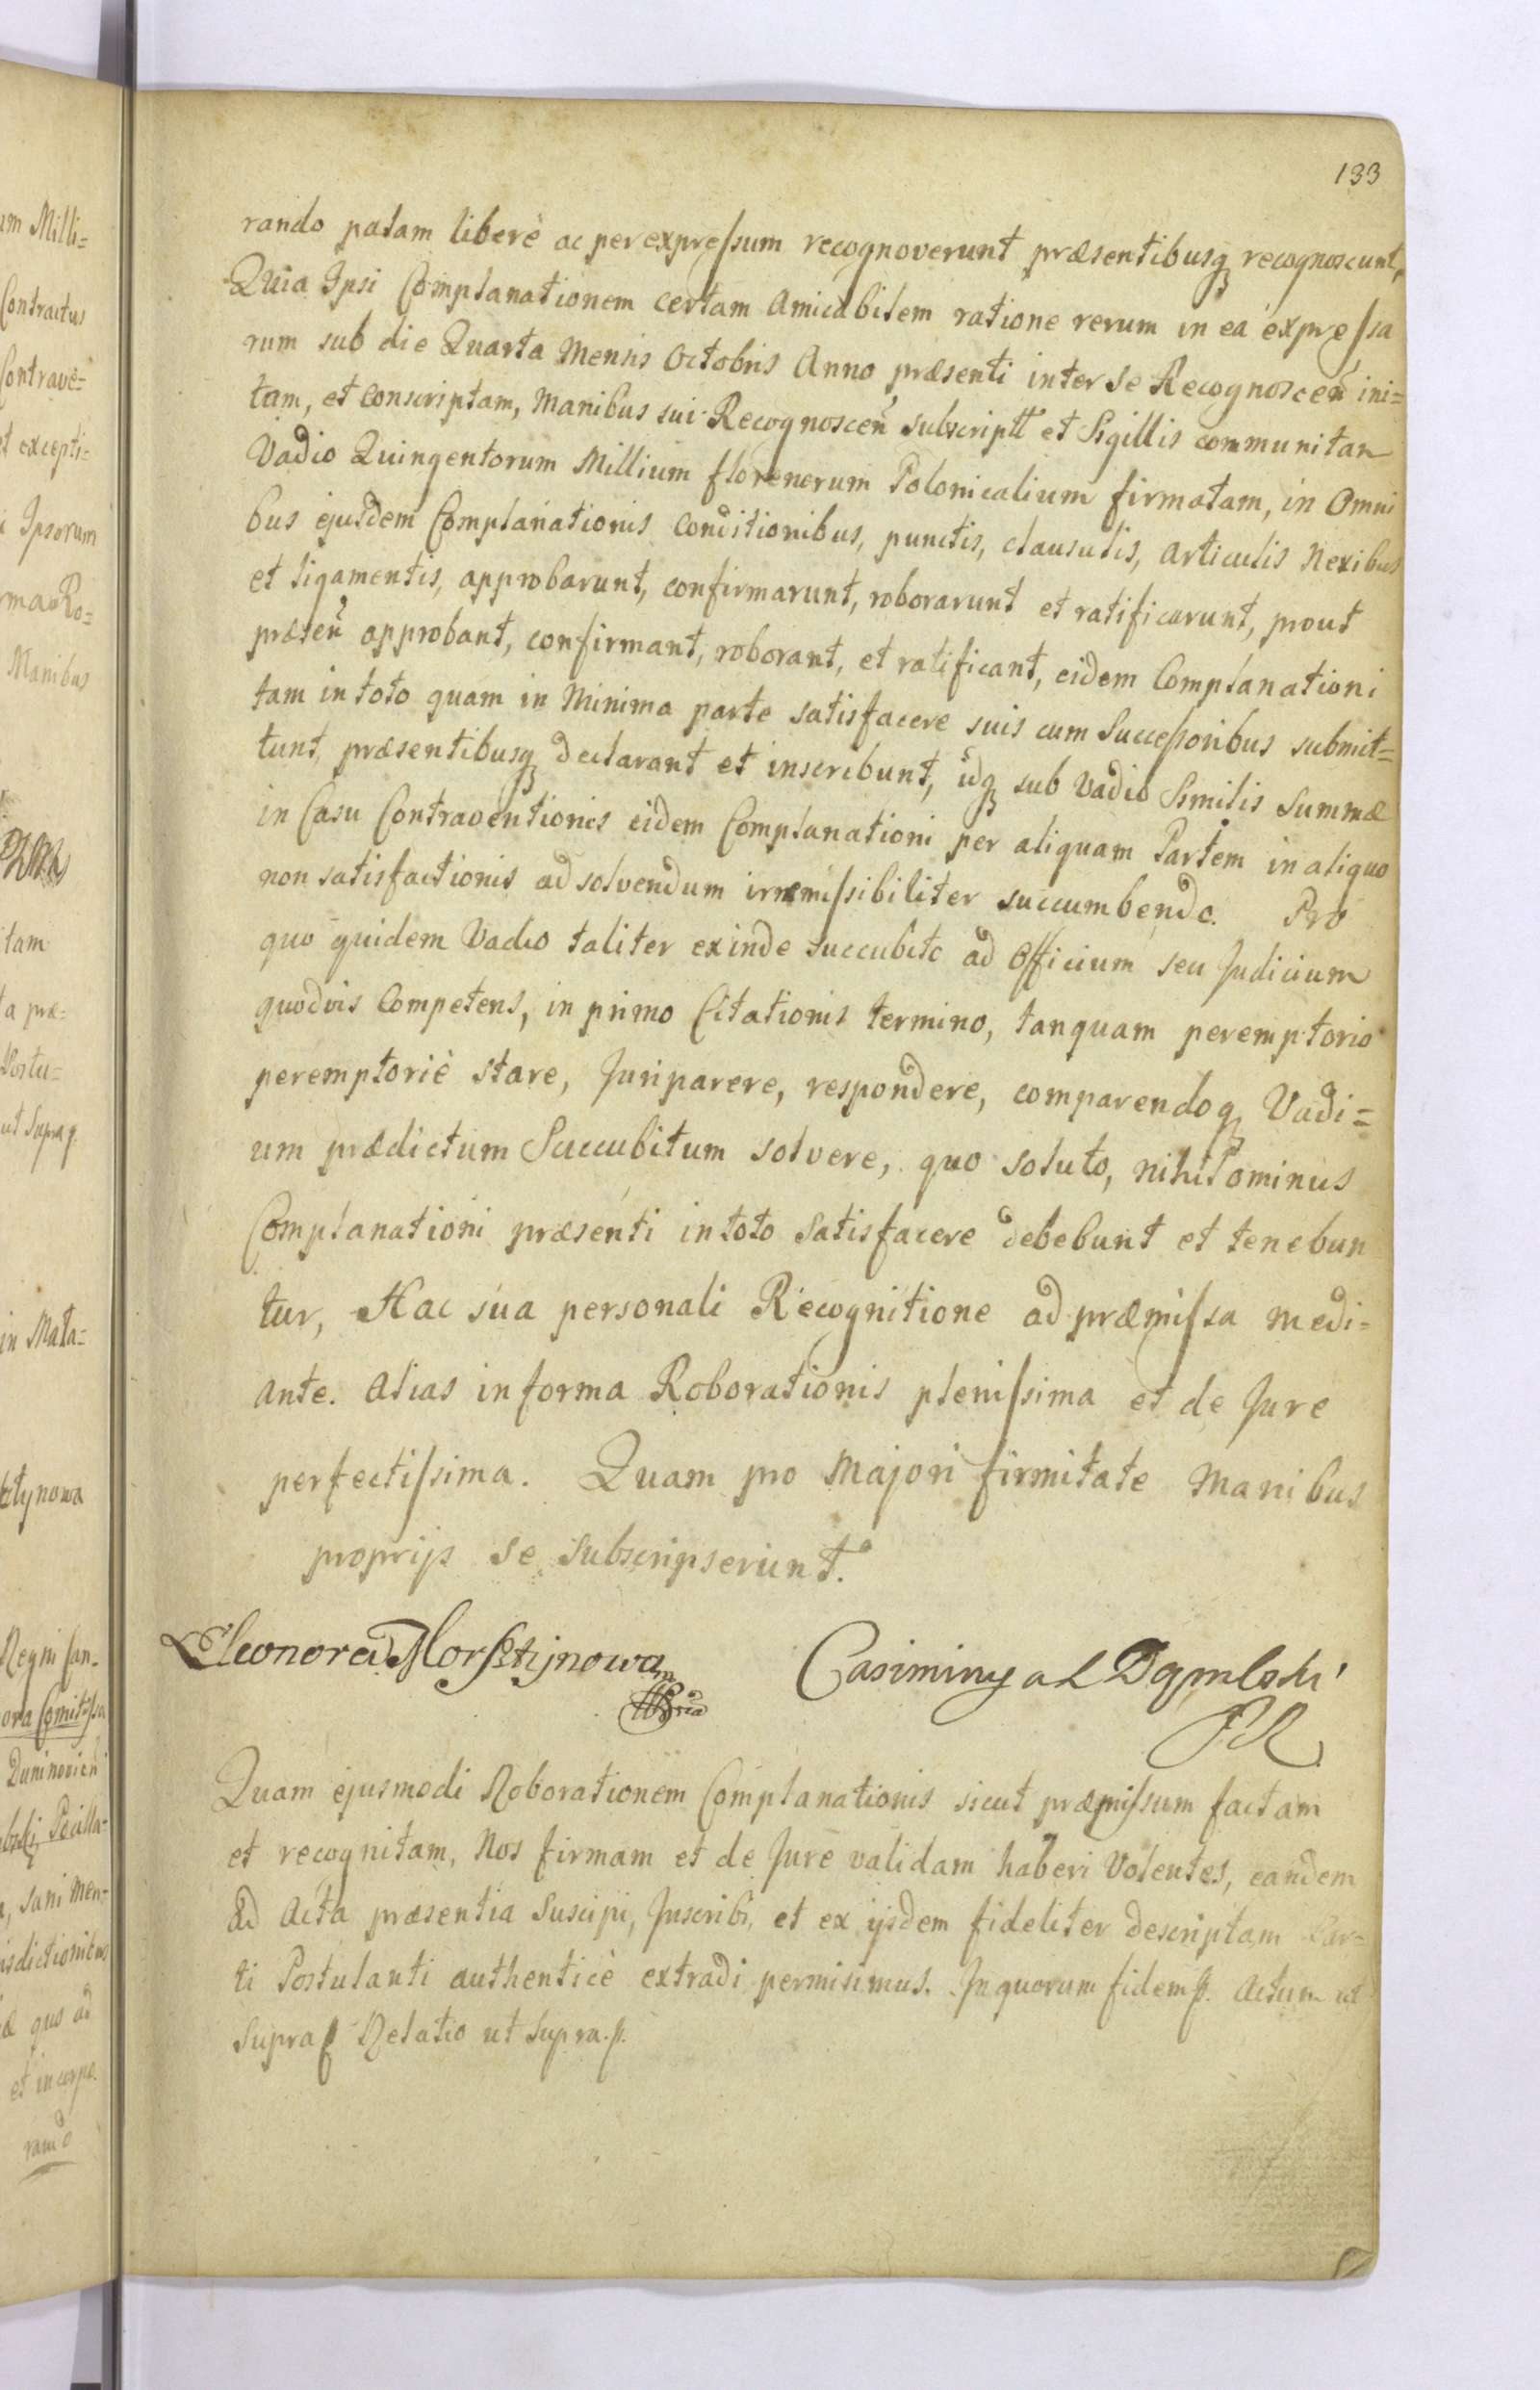 133
rando palam liberè ac per expressum recognoverunt præsentibusq recognoscunt,
Quia Ipsi Complanationem certam Amicabilem ratione rerum in ea expressa
rum sub die Quarta Mensis Octobris Anno præsenti inter se Recognoscen ini=
tam, et conscriptam, Manibus sui Recognoscen subscriptt et Sigillis communitam
Vadio Quingentorum Millium florenorum Polonicalium firmatam, in Omni
bus ejusdem Complanationis Conditionibus, punctis, clausulis, Articulis Nexibus
et ligamentis, approbarunt, confirmarunt, roborarunt et ratificarunt, prout
præsen approbant, confirmant, roborant, et ratificant, eidem Complanationi
tam in toto quam in Minima parte satisfacere suis cum Successoribus submit=
tunt, præsentibusq declarant et inscribunt, idq sub Vadio Similis Summæ
in Casu Contraventionis eidem Complanationi per aliquam Partem in aliquo
non satisfactionis ad solvendum irremissibiliter succumbendo. Pro
quo quidem Vadio taliter exinde succubito ad Officium seu Judicium
quodvis Competens, in primo Citationis termino, tanquam peremptorio
peremptoriè stare, Juri parere, respondere, comparendoq Vadi=
um prædictum Succubitum solvere, quo soluto, nihilominus
Complanationi præsenti in toto Satisfacere debebunt et tenebun
tur, Hac sua personali Recognitione ad præmissa medi=
ante. Alias in forma Roborationis plenissima et de Jure
perfectissima. Quam pro Majori firmitate Manibus
proprijs se subscripserunt.
Eleonora Morsztynowa
Quam ejusmodi Roborationem Complanationis sicut præmissum factam
et recognitam, Nos firmam et de Jure validam haberi Volentes, eandem
Ad Acta præsentia Suscipi, Inscribi, et ex ijsdem fideliter descriptam Par=
ti Postulanti authenticè extradi permisimus. In quorum fidem p. Actum ut
supra p Relatio ut supra p.